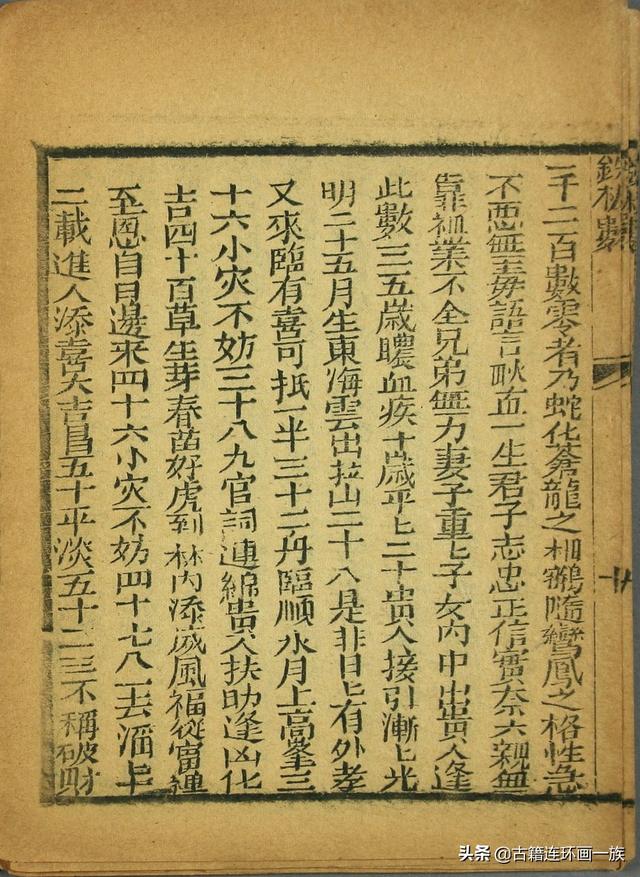 鉄板數
十八
一千二百數零者乃蛇化蒼龍之相鶴隨鸞鳳之格性急
不悪無至毎語言耿血一生君子志忠正信實奈六親無
靠祖業不全兄弟無力妻子重七子女内中出貴人逢
此數三五歲膿血疾十歲平七二十貴人接引漸七光
明二十五月生東海雲出拉山二十八是非日上有外孝
又來臨有喜可抵一半三十二丹臨順水月上高峯三
十六小灾不妨三十八九官詞連綿貴人扶助逢凶化
吉四十百草生芽春苗好虎到林内添威風福從富
至恩自日邊来四十六小灾不妨四十七八一去
二載進人添喜大吉昌五十平淡五十二三不稱破財
头条@古籍连环画一族